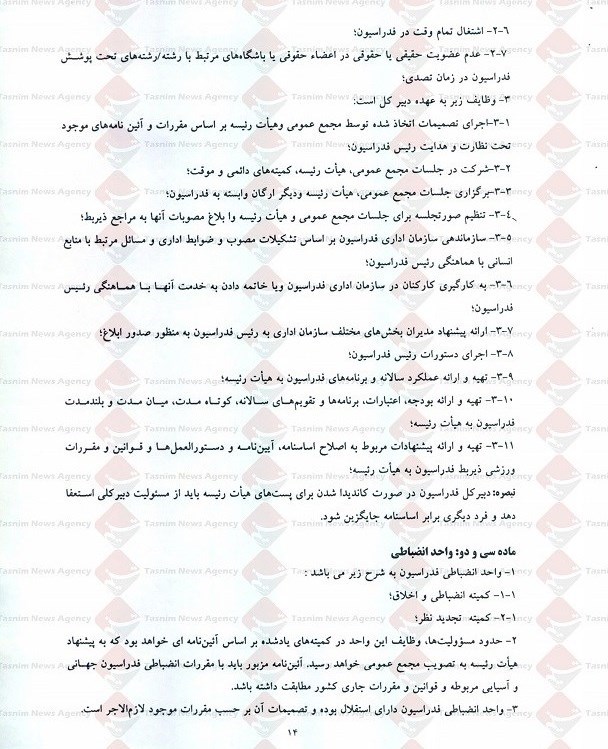 ۲-۶- اشتغال تمام وقت در فدراسیون؛
۲-۷- عدم عضویت حقیقی یا حقوقی در اعضاء حقوقی یا باشگاه‌های مرتبط با رشته/رشته‌های تحت پوشش
فدراسیون در زمان تصدی؛
۳- وظایف زیر به عهده دبیر کل است:
۳-۱-اجرای تصمیمات اتخاذ شده توسط مجمع عمومی وهیأت رئیسه بر اساس مقررات و آئین نامه‌های موجود
تحت نظارت و هدایت رئیس فدراسیون؛
۳-۲-شرکت در جلسات مجمع عمومی، هیأت رئیسه، کمیته‌های دائمی و موقت؛
۳-۳-برگزاری جلسات مجمع عمومی، هیأت رئیسه ودیگر ارگان وابسته به فدراسیون؛
۳-٤- تنظیم صورتجلسه برای جلسات مجمع عمومی و هیأت رئیسه وا بلاغ مصوبات آنها به مراجع ذیربط؛
۳-۵- سازماندهی سازمان اداری فدراسیون بر اساس تشکیلات مصوب و ضوابط اداری و مسائل مرتبط با منابع
انسانی با هماهنگی رئیس فدراسیون؛
۳-۶- به کارگیری کارکنان در سازمان اداری فدراسیون ویا خاتمه دادن به خدمت آنها با هماهنگی رئیس
فدراسیون؛
۳-۷- ارائه پیشنهاد مدیران بخش‌های مختلف سازمان اداری به رئیس فدراسیون به منظور صدور ابلاغ؛
۳-۸- اجرای دستورات رئیس فدراسیون؛
۳-۹- تهیه و ارائه عملکرد سالانه و برنامه‌های فدراسیون به هیأت رئیسه؛
۳-۱۰- تهیه و ارائه بودجه، اعتبارات، برنامه‌ها و تقویم‌های سالانه، کوتاه مدت، میان مدت و بلندمدت
فدراسیون به هیأت رئیسه؛
۳-۱۱- تهیه و ارائه پیشنهادات مربوط به اصلاح اساسنامه، آیین‌نامه و دستورالعمل‌ها و قوانین و مقررات
ورزشی ذیربط فدراسیون به هیأت رئیسه؛
تبصره: دبیرکل فدراسیون در صورت کاندیدا شدن برای پست‌های هیأت رئیسه باید از مسئولیت دبیرکلی استعفا
دهد و فرد دیگری برابر اساسنامه جایگزین شود.
ماده سی و دو: واحد انضباطی
۱- واحد انضباطی فدراسیون به شرح زیر می باشد :
۱-۱- کمیته انضباطی و اخلاق؛
۱-۲- کمیته تجدید نظر؛
۲- حدود مسؤولیت‌ها، وظایف این واحد در کمیته‌های یادشده بر اساس آئین‌نامه ای خواهد بود که به پیشنهاد
هیأت رئیسه به تصویب مجمع عمومی خواهد رسید. آئین‌نامه مزبور باید با مقررات انضباطی فدراسیون جهانی
و آسیایی مربوطه و قوانین و مقررات جاری کشور مطابقت داشته باشد.
۳- واحد انضباطی فدراسیون دارای استقلال بوده و تصمیمات آن بر حسب مقررات موجود لازم‌الاجر است.
۱۴
Tasnim News Agency